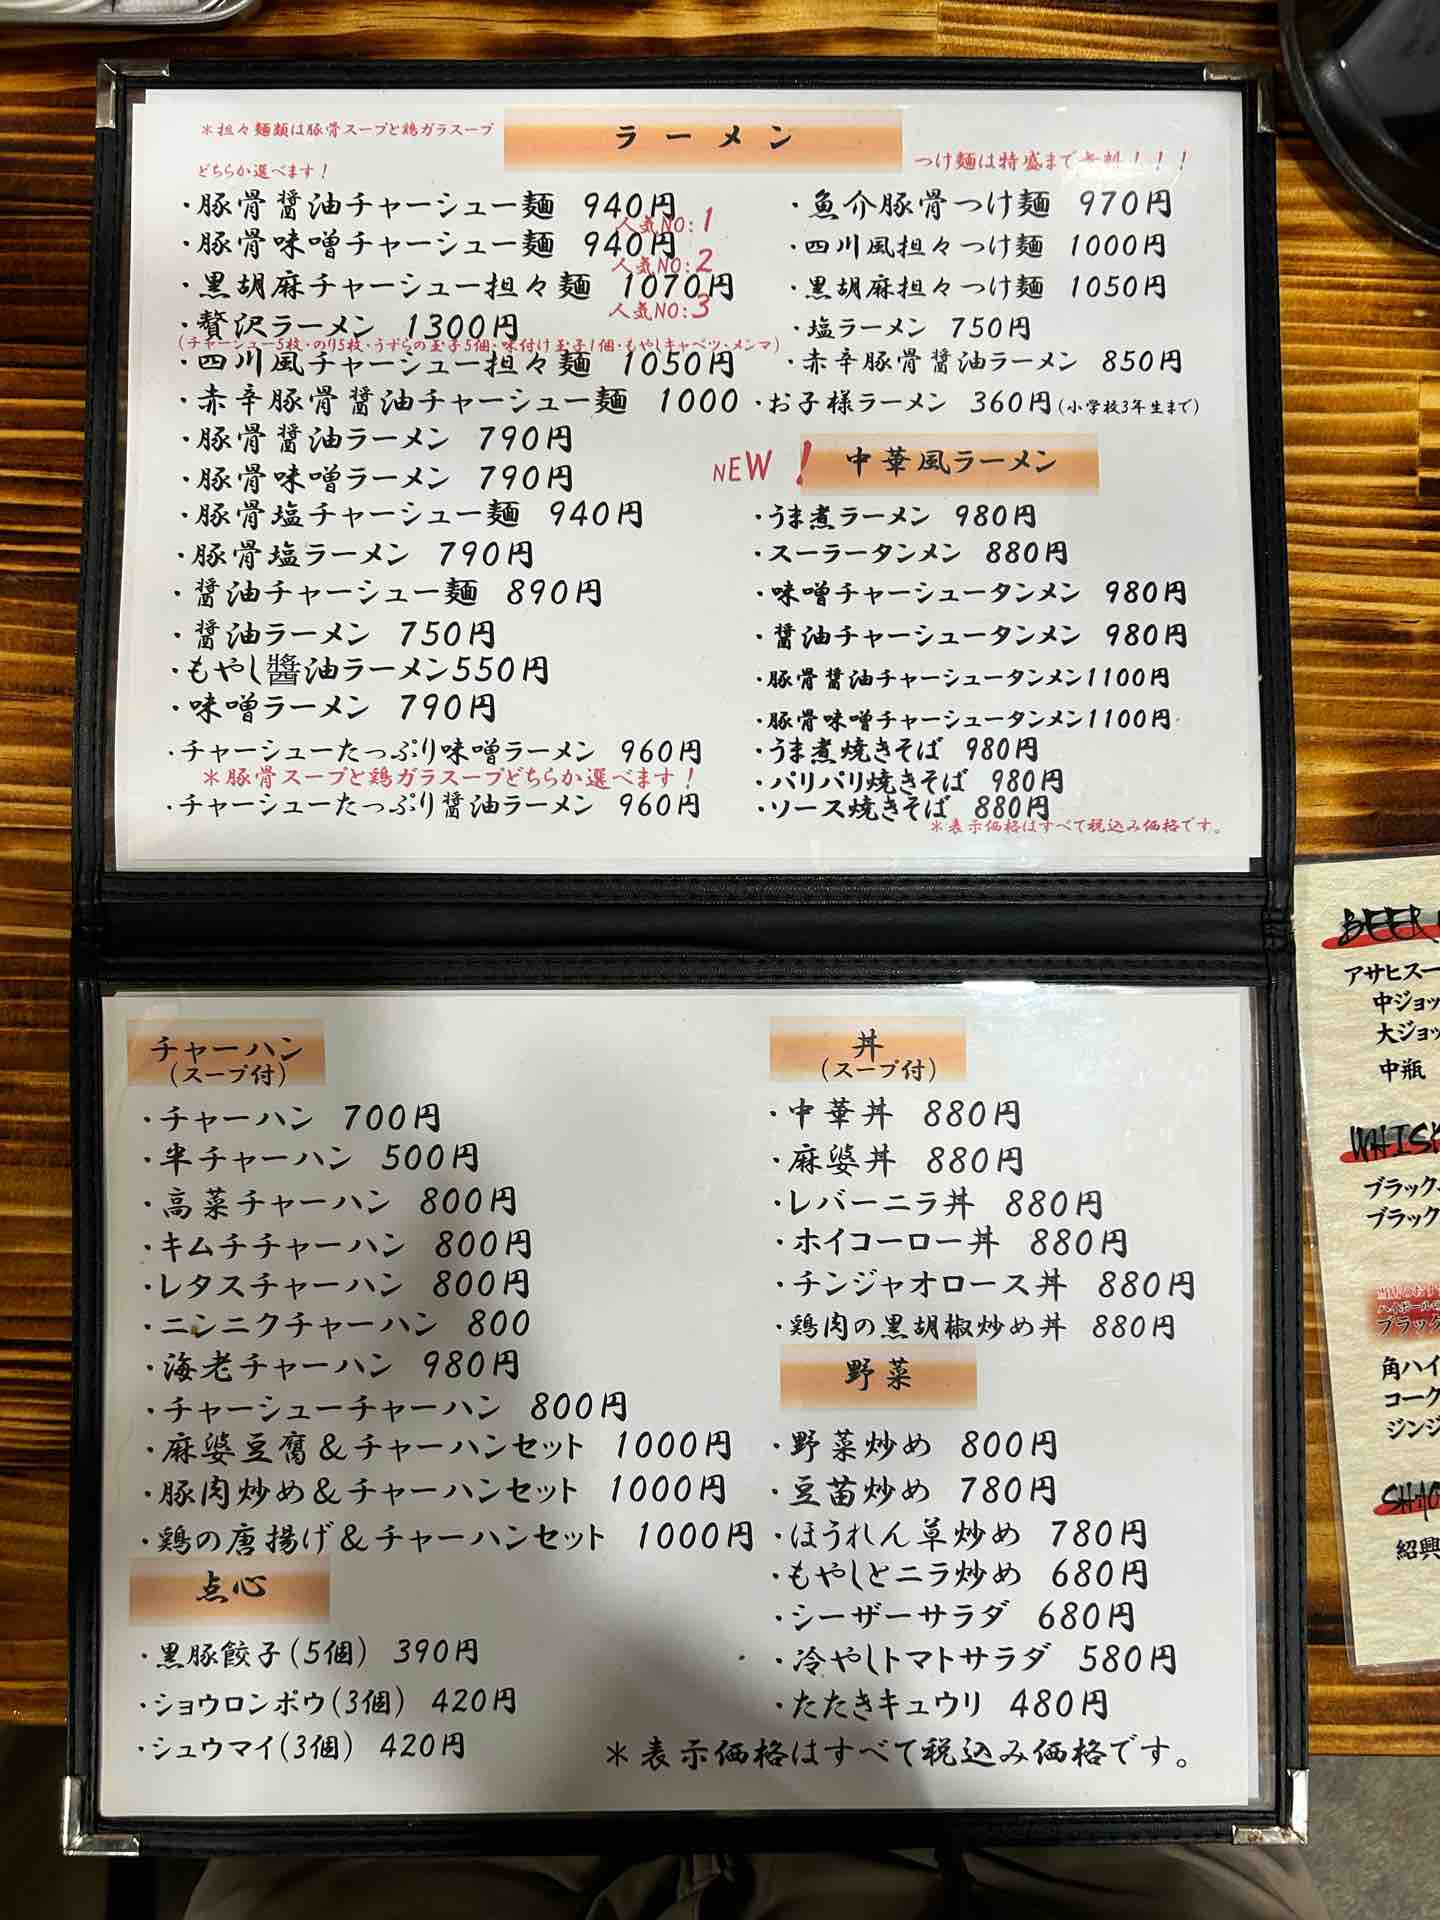 ラーメン
＊担々麺類は豚骨スープと鶏ガラスープ
どちらか選べます！
・豚骨醤油チャーシュー麺 940円
人気NO:1
・豚骨味噌チャーシュー麺 940円
人気NO:2
・黒胡麻チャーシュー担々麺 1070円
人気NO:3
・贅沢ラーメン 1300円
(チャーシュー5枚・のり5枚・うずらの玉子5個・味付け玉子1個・もやしキャベツ・メンマ)
・四川風チャーシュー担々麺 1050円
・赤辛豚骨醤油チャーシュー麺 1000
・豚骨醤油ラーメン 790円
・豚骨味噌ラーメン 790円
・豚骨塩チャーシュー麺 940円
・豚骨塩ラーメン 790円
・醤油チャーシュー麺 890円
・醤油ラーメン 750円
・もやし醬油ラーメン550円
・味噌ラーメン 790円
・チャーシューたっぷり味噌ラーメン 960円
＊豚骨スープと鶏ガラスープどちらか選べます！
・チャーシューたっぷり醤油ラーメン 960円
つけ麺は特盛まで無料！！！
・魚介豚骨つけ麺 970円
・四川風担々つけ麺 1000円
・黒胡麻担々つけ麺 1050円
・塩ラーメン 750円
・赤辛豚骨醤油ラーメン 850円
・お子様ラーメン 360円(小学校3年生まで)
NEW！ 中華風ラーメン
・うま煮ラーメン 980円
・スーラータンメン 880円
・味噌チャーシュータンメン 980円
・醤油チャーシュータンメン 980円
・豚骨醤油チャーシュータンメン1100円
・豚骨味噌チャーシュータンメン1100円
・うま煮焼きそば 980円
・パリパリ焼きそば 980円
・ソース焼きそば 880円
＊表示価格はすべて税込み価格です。
チャーハン
(スープ付)
・チャーハン 700円
・半チャーハン 500円
・高菜チャーハン 800円
・キムチチャーハン 800円
・レタスチャーハン 800円
・ニンニクチャーハン 800
・海老チャーハン 980円
・チャーシューチャーハン 800円
・麻婆豆腐＆チャーハンセット 1000円
・豚肉炒め＆チャーハンセット 1000円
・鶏の唐揚げ＆チャーハンセット 1000円
点心
・黒豚餃子(5個) 390円
・ショウロンポウ(3個) 420円
・シュウマイ(3個) 420円
丼
(スープ付)
・中華丼 880円
・麻婆丼 880円
・レバーニラ丼 880円
・ホイコーロー丼 880円
・チンジャオロース丼 880円
・鶏肉の黒胡椒炒め丼 880円
野菜
・野菜炒め 800円
・豆苗炒め 780円
・ほうれん草炒め 780円
・もやしとニラ炒め 680円
・シーザーサラダ 680円
・冷やしトマトサラダ 580円
・たたきキュウリ 480円
＊表示価格はすべて税込み価格です。
BEER
アサヒスー
中ジョッ
大ジョッ
中瓶
WHISK
ブラック
ブラック
ブラック
角ハイ
コーク
ジンジ
紹興